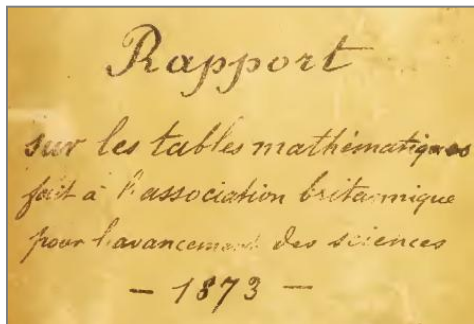 Rapport
sur les tables mathématiques
fait à l'association britannique
pour l'avancement des sciences
— 1873 —